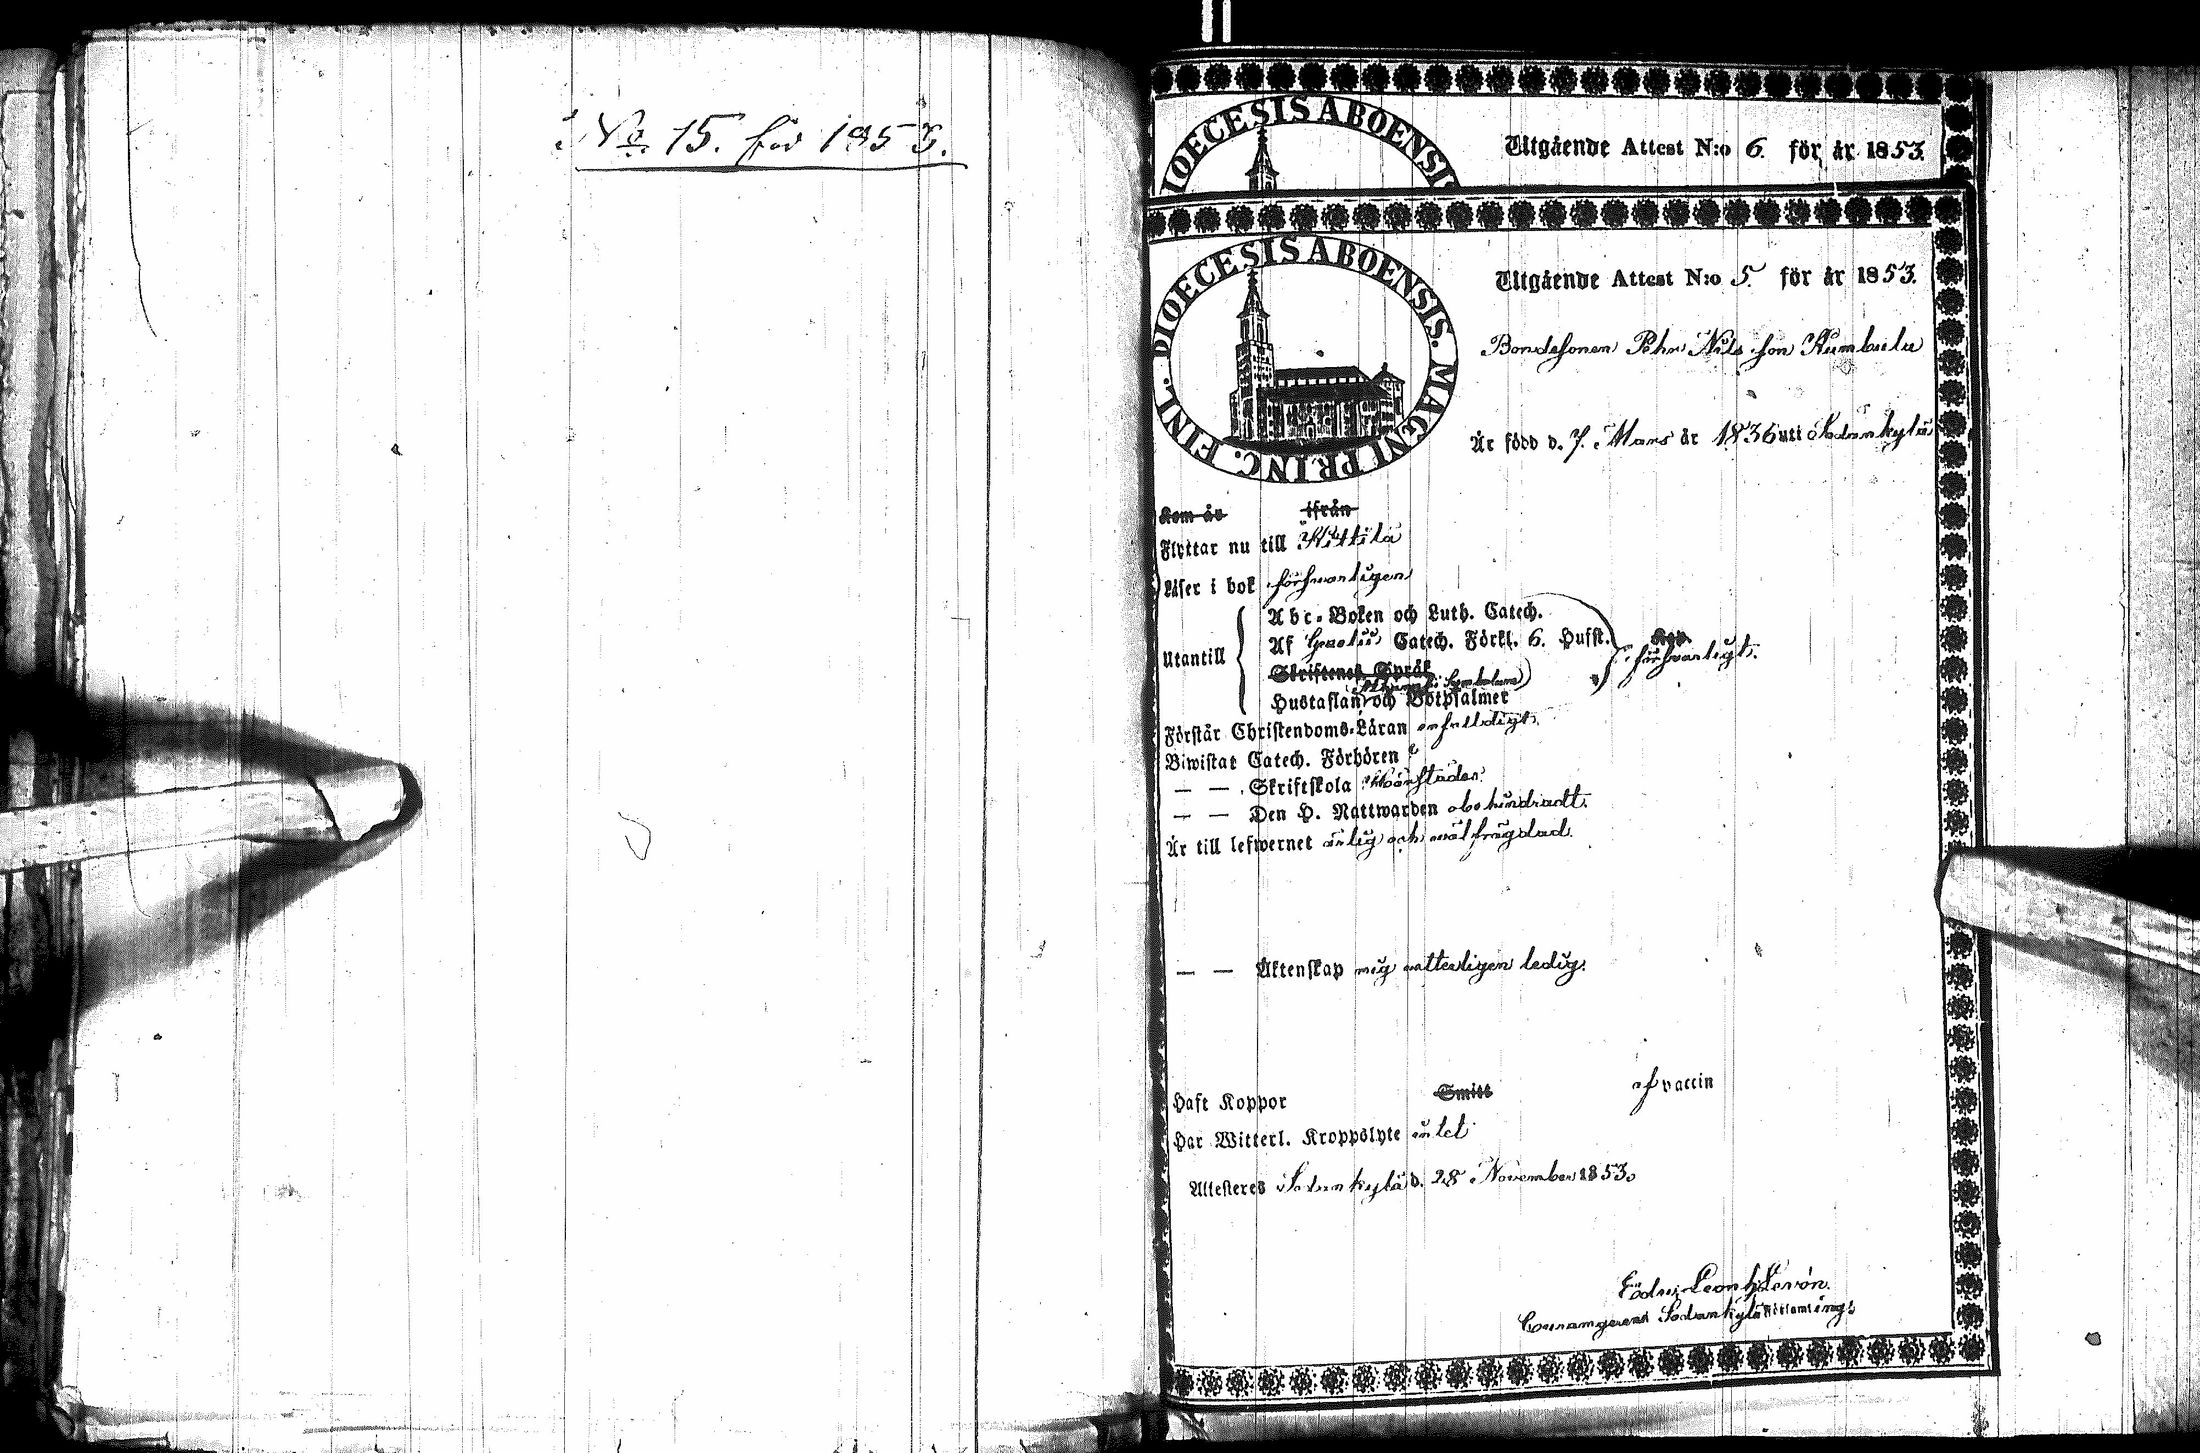 No 15. för 1853.
DIOECESIS ABOENSIS
Utgående Attest N:o 6. för år 1853.
DIOECESIS ABOENSIS. MAGNI PRINC. FINL.
Utgående Attest N:o 5. för år 1853.
Bondesonen Pehr Nils son Kumbula
Är född d. 7. Mars år 1836 uti Sodankylä
Kom år ifrån
Flyttar nu till Kittilä
Läser i bok försvarligen
Abc-Boken och Luth. Catech.
Af Catech. Förkl. 6. Hufst.
Utantill försvarligt.
Skriftenes Språk
Symbolum
Hustaflan och Botpsalmer
Förstår Christendoms-Läran enfalldigt.
Biwistat Catech. Förhören
— — Skriftskola
— — Den H. Nattwarden obehindradt.
Är till lefwernet ärlig och wälfrägdad.
— — Äktenskap mig vetterligen ledig.
Haft Koppor Smitt af vaccin
Har Witterl. Kroppslyte intet
Attesteres Sodankylä d. 28 November 1853.
Sodankylä Församlings